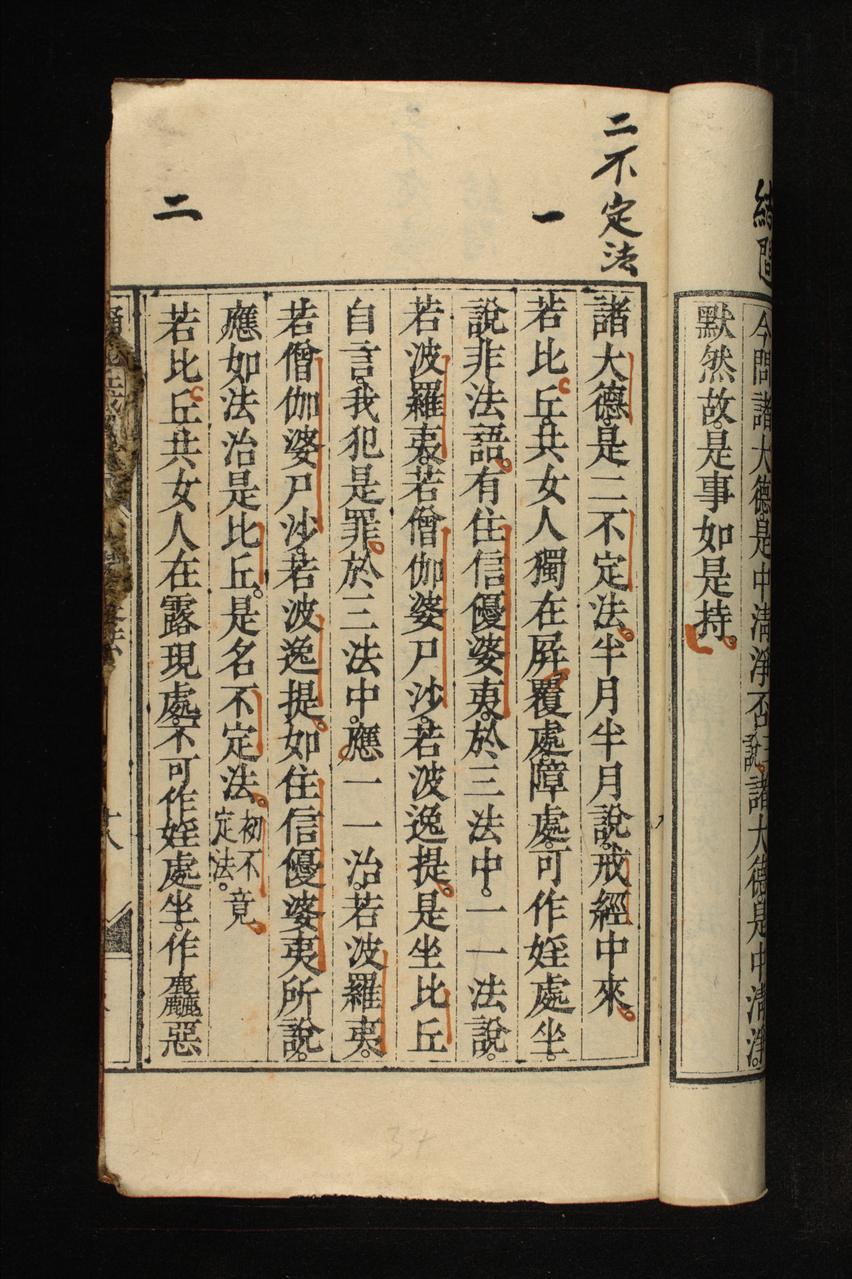 結問
今問諸大德是中清淨否三說諸大德是中清淨
默然故是事如是持
二不定法
諸大德是二不定法半月半月說戒經中來
一
若比丘共女人獨在屏覆處障處可作婬處坐
說非法語有住信優婆夷於三法中一一法說
若波羅夷若僧伽婆尸沙若波逸提是坐比丘
自言我犯是罪於三法中應一一治若波羅夷
若僧伽婆尸沙若波逸提如住信優婆夷所說
應如法治是比丘是名不定法初不竟定法
二
若比丘共女人在露現處不可作婬處坐作麤惡